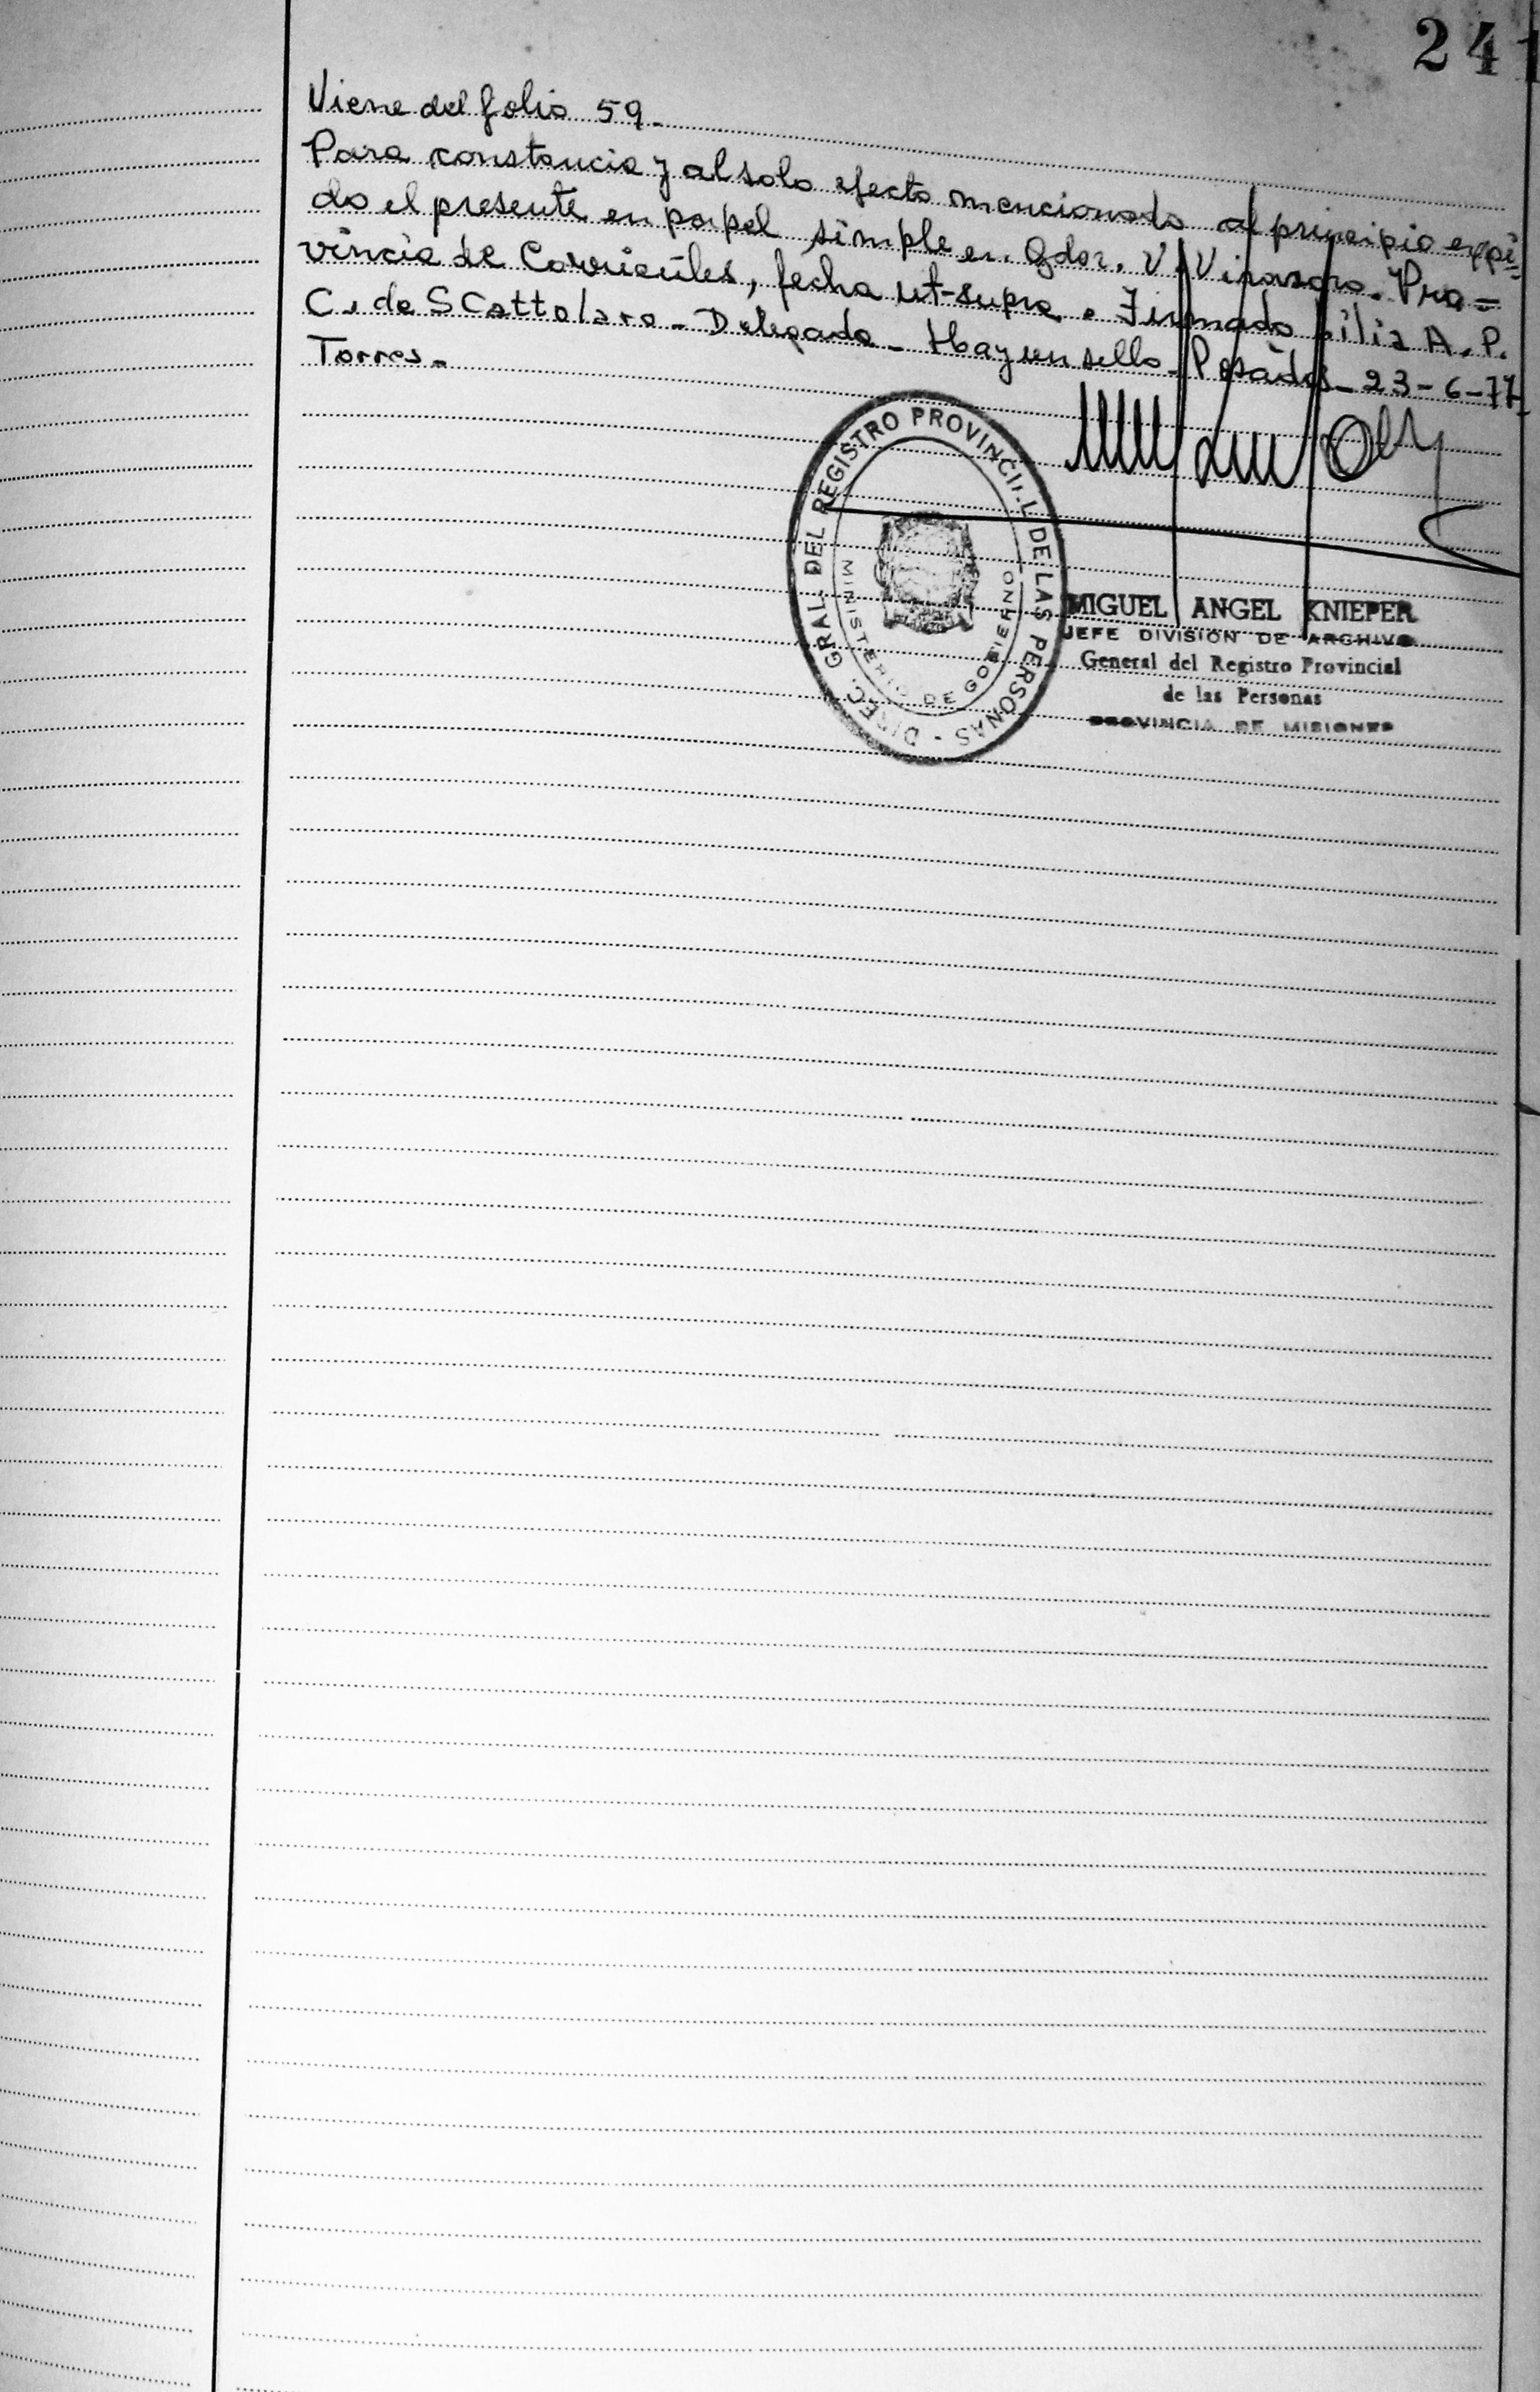 241
Viene del folio 59.
Para constancia y al solo efecto mencionado al principio expi-
do el presente en papel simple en Gdor. V. Virasoro. Pro=
vincia de Corrientes, fecha ut-supra. Firmado Lilia A. P.
C. de SCattolaro - Delegada - Hay un sello. Posadas - 23-6-77
Torres.
DIREC. GRAL. DEL REGISTRO PROVINCIAL DE LAS PERSONAS -
MINISTERIO DE GOBIERNO
MIGUEL ANGEL KNIEPER
JEFE DIVISION DE ARCHIVO
General del Registro Provincial
de las Personas
PROVINCIA DE MISIONES